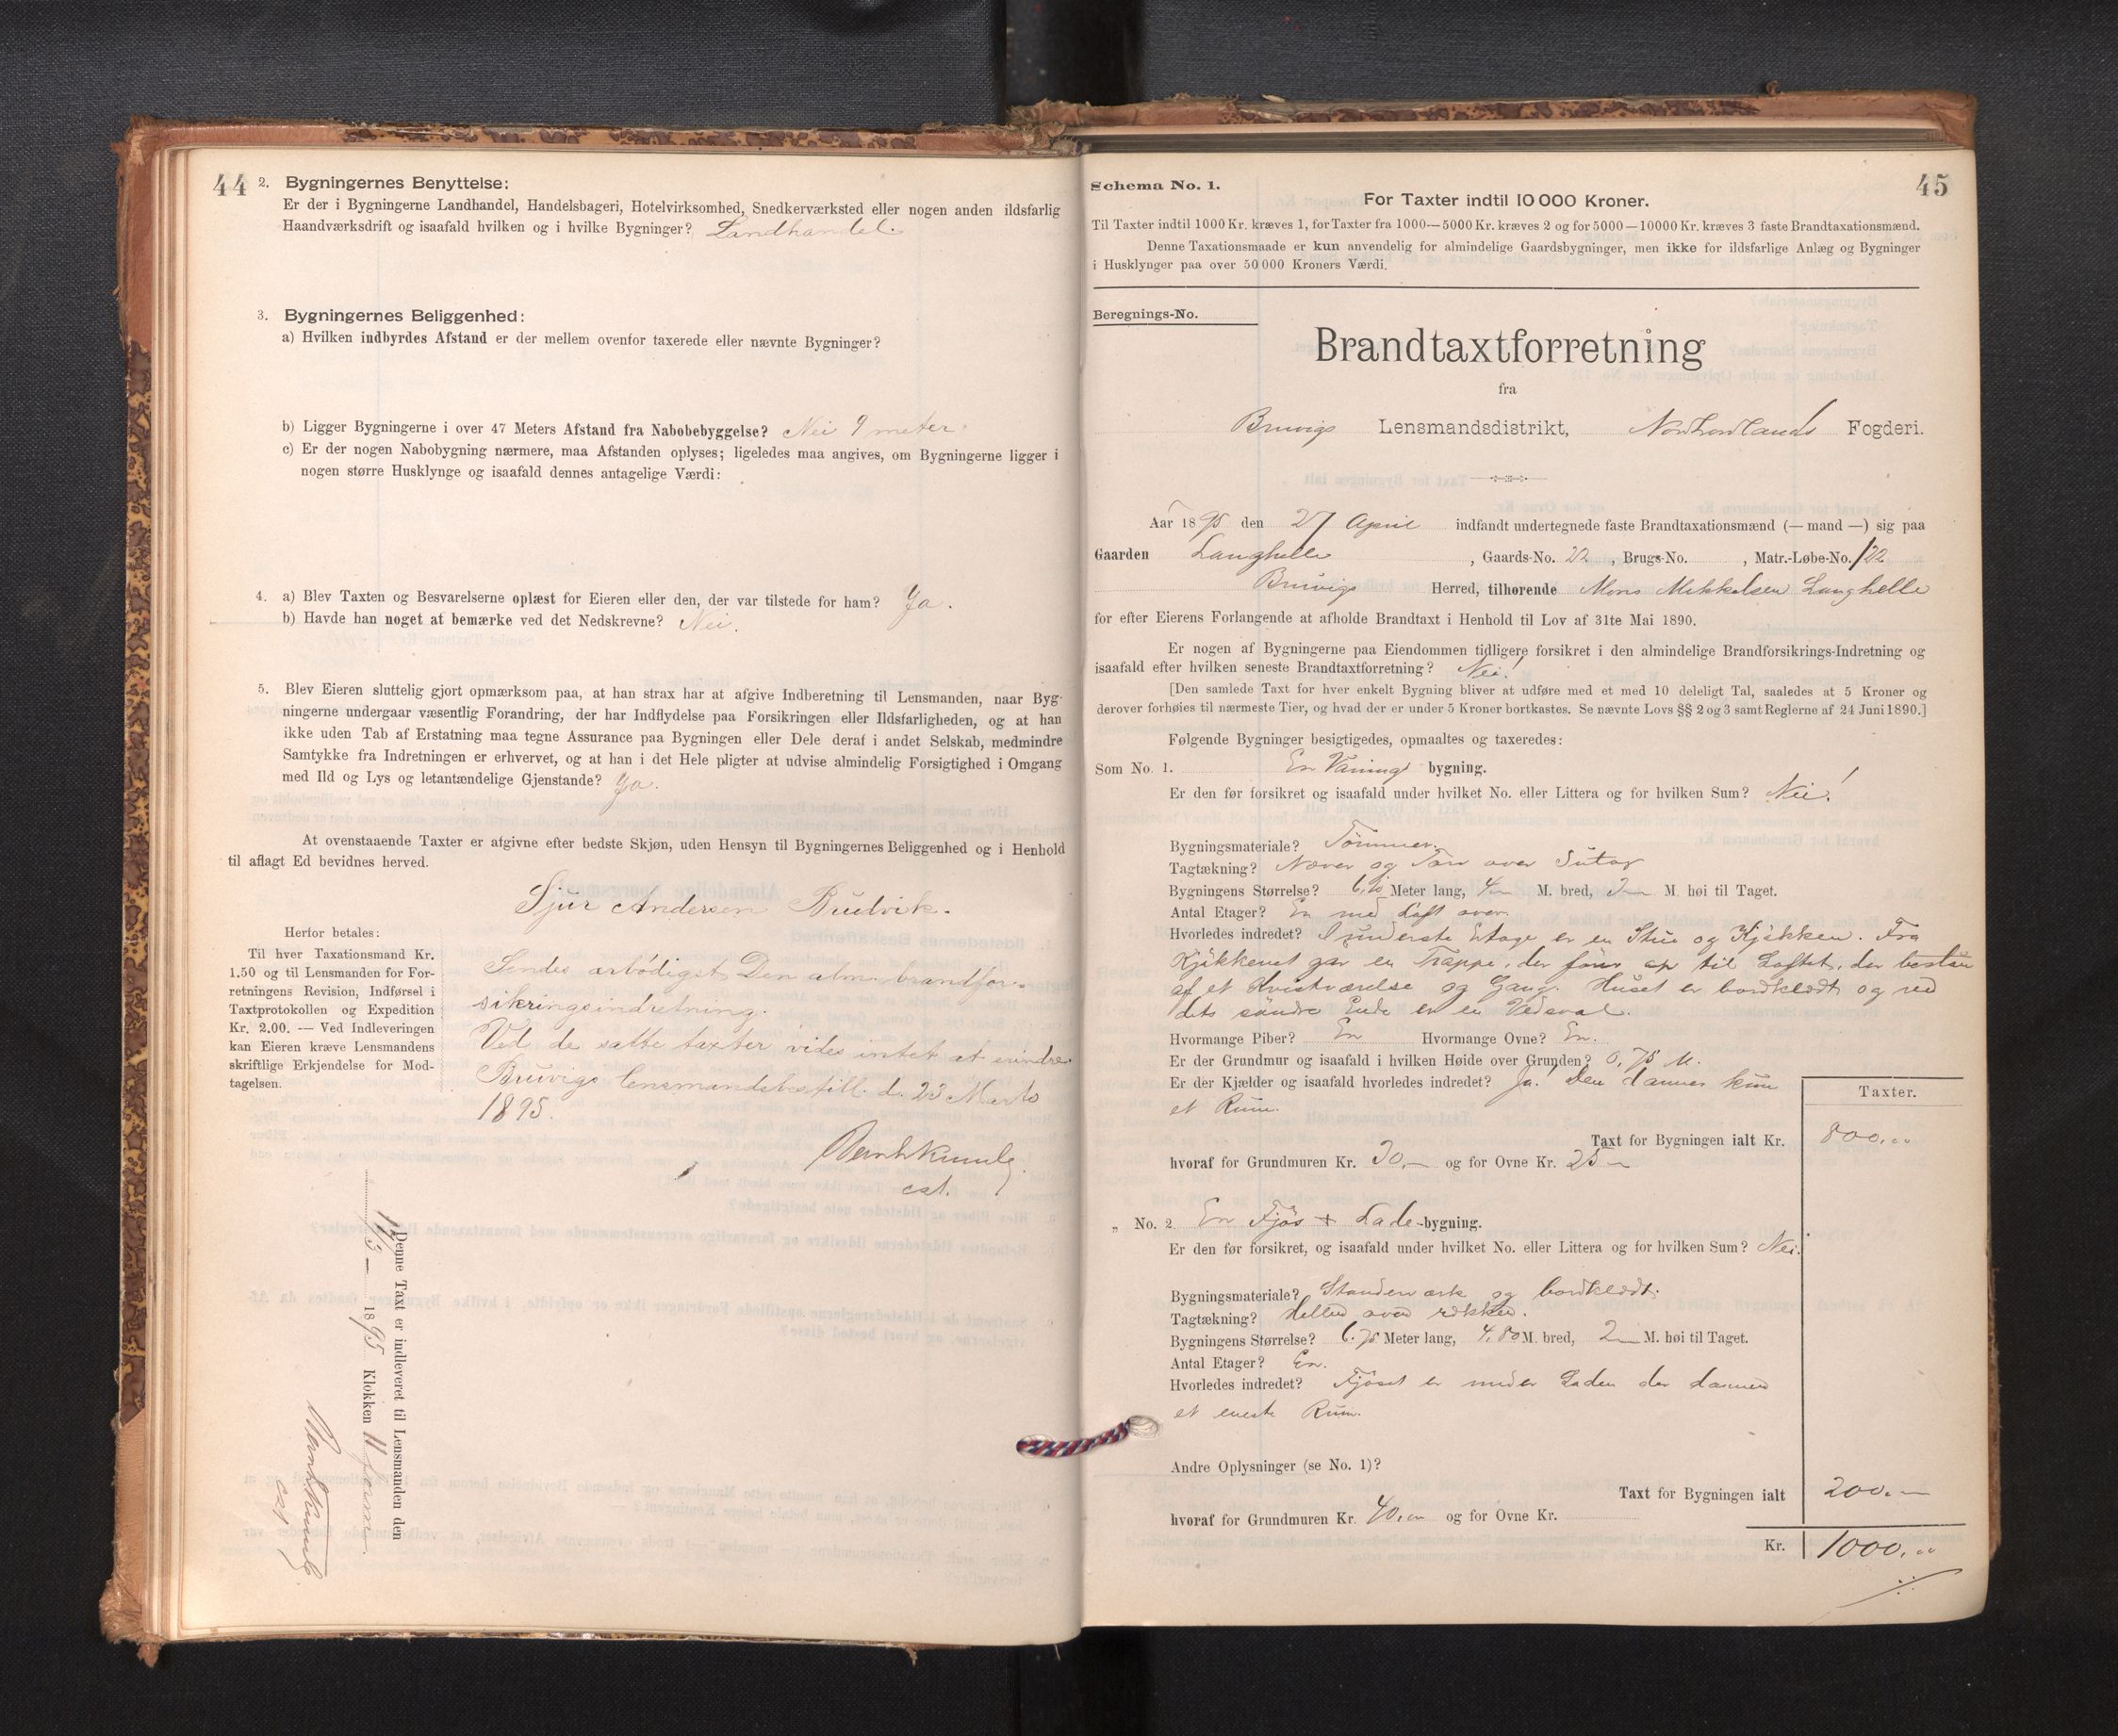 44
2. Bygningernes Benyttelse:
Er der i Bygningerne Landhandel, Handelsbageri, Hotelvirksomhed, Snedkerværksted eller nogen anden ildsfarlig
Haandværksdrift og isaafald hvilken og i hvilke Bygninger? Landhandel.
3. Bygningernes Beliggenhed:
a) Hvilken indbyrdes Afstand er der mellem ovenfor taxerede eller nævnte Bygninger?
b) Ligger Bygningerne i over 47 Meters Afstand fra Nabobebyggelse? Nei 9 meter.
c) Er der nogen Nabobygning nærmere, maa Afstanden oplyses; ligeledes maa angives, om Bygningerne ligger i
nogen større Husklynge og isaafald dennes antagelige Værdi:
4. a) Blev Taxten og Besvarelserne oplæst for Eieren eller den, der var tilstede for ham? Ja.
b) Havde han noget at bemærke ved det Nedskrevne? Nei.
5. Blev Eieren sluttelig gjort opmærksom paa, at han strax har at afgive Indberetning til Lensmanden, naar Byg-
ningerne undergaar væsentlig Forandring, der har Indflydelse paa Forsikringen eller Ildsfarligheden, og at han
ikke uden Tab af Erstatning maa tegne Assurance paa Bygningen eller Dele deraf i andet Selskab, medmindre
Samtykke fra Indretningen er erhvervet, og at han i det Hele pligter at udvise almindelig Forsigtighed i Omgang
med Ild og Lys og letantændelige Gjenstande? Ja.
At ovenstaaende Taxter er afgivne efter bedste Skjøn, uden Hensyn til Bygningernes Beliggenhed og i Henhold
til aflagt Ed bevidnes herved.
Sjur Andersen Bruvik.
Herfor betales:
Til hver Taxationsmand Kr.
1.50 og til Lensmanden for For-
retningens Revision, Indførsel i
Taxtprotokollen og Expedition
Kr. 2.00. — Ved Indleveringen
kan Eieren kræve Lensmandens
skriftlige Erkjendelse for Mod-
tagelsen.
Sendes ærbödigst Den alm. brandfor-
sikringsindretning.
Ved de satte taxter vides intet at erindre.
Bruvigs lensmandsbestill. d. 23 Marts
1895.
cst.
Denne Taxt er indleveret til Lensmanden den
1895 Klokken 11 form.
cst
45
Schema No. 1.
For Taxter indtil 10 000 Kroner.
Til Taxter indtil 1000 Kr. kræves 1, for Taxter fra 1000—5000 Kr. kræves 2 og for 5000—10000 Kr. kræves 3 faste Brandtaxationsmænd.
Denne Taxationsmaade er kun anvendelig for almindelige Gaardsbygninger, men ikke for ildsfarlige Anlæg og Bygninger
i Husklynger paa over 50 000 Kroners Værdi.
Beregnings-No.
Brandtaxtforretning
fra
Bruvigs Lensmandsdistrikt, Nordhordlands Fogderi.
Aar 1895 den 27 April indfandt undertegnede faste Brandtaxationsmænd (— mand —) sig paa
Gaarden Langhelle, Gaards-No. 22, Brugs-No. , Matr.-Løbe-No. 122
Bruvigs Herred, tilhørende Mons Mikkelsen Langhelle
for efter Eierens Forlangende at afholde Brandtaxt i Henhold til Lov af 31te Mai 1890.
Er nogen af Bygningerne paa Eiendommen tidligere forsikret i den almindelige Brandforsikrings-Indretning og
isaafald efter hvilken seneste Brandtaxtforretning? Nei!
[Den samlede Taxt for hver enkelt Bygning bliver at udføre med et med 10 deleligt Tal, saaledes at 5 Kroner og
derover forhøies til nærmeste Tier, og hvad der er under 5 Kroner bortkastes. Se nævnte Lovs §§ 2 og 3 samt Reglerne af 24 Juni 1890.]
Følgende Bygninger besigtigedes, opmaaltes og taxeredes:
Som No. 1. En Vaanings bygning.
Er den før forsikret og isaafald under hvilket No. eller Littera og for hvilken Sum? Nei!
Bygningsmateriale? Tömmer.
Tagtækning? Næver og Törv over Sutag
Bygningens Størrelse? Meter lang, M. bred, M. høi til Taget.
Antal Etager? En med Loft over.
Hvorledes indredet? I underste Etage er en Stue og Kjökken. Fra
Kjökkenet gaar en Trappe, der förer op til Loftet, der bestaar
af et Kvistværelse og Gang. Huset er bordklædt og ved
dets söndre Ende er en Vedsval.
Hvormange Piber? En Hvormange Ovne? En.
Er der Grundmur og isaafald i hvilken Høide over Grunden? 0,75 M.
Er der Kjælder og isaafald hvorledes indredet? Ja! Den danner kun
et Rum.
Taxter.
Taxt for Bygningen ialt Kr. 800,00
hvoraf for Grundmuren Kr. 30,— og for Ovne Kr. 25 —
„ No. 2 En Fjös + Lade-bygning.
Er den før forsikret, og isaafald under hvilket No. eller Littera og for hvilken Sum? Nei.
Bygningsmateriale? Standerværk og bordklædt.
Tagtækning? Heller over rækker.
Bygningens Størrelse? 6.75 Meter lang, 4,80 M. bred, 2 — M. høi til Taget.
Antal Etager? En.
Hvorledes indredet? Fjöset er under Laden der danner
et eneste Rum.
Andre Oplysninger (se No. 1)?
Taxt for Bygningen ialt 200,—
hvoraf for Grundmuren Kr. 40,00 og for Ovne Kr.
Kr. 1000,00